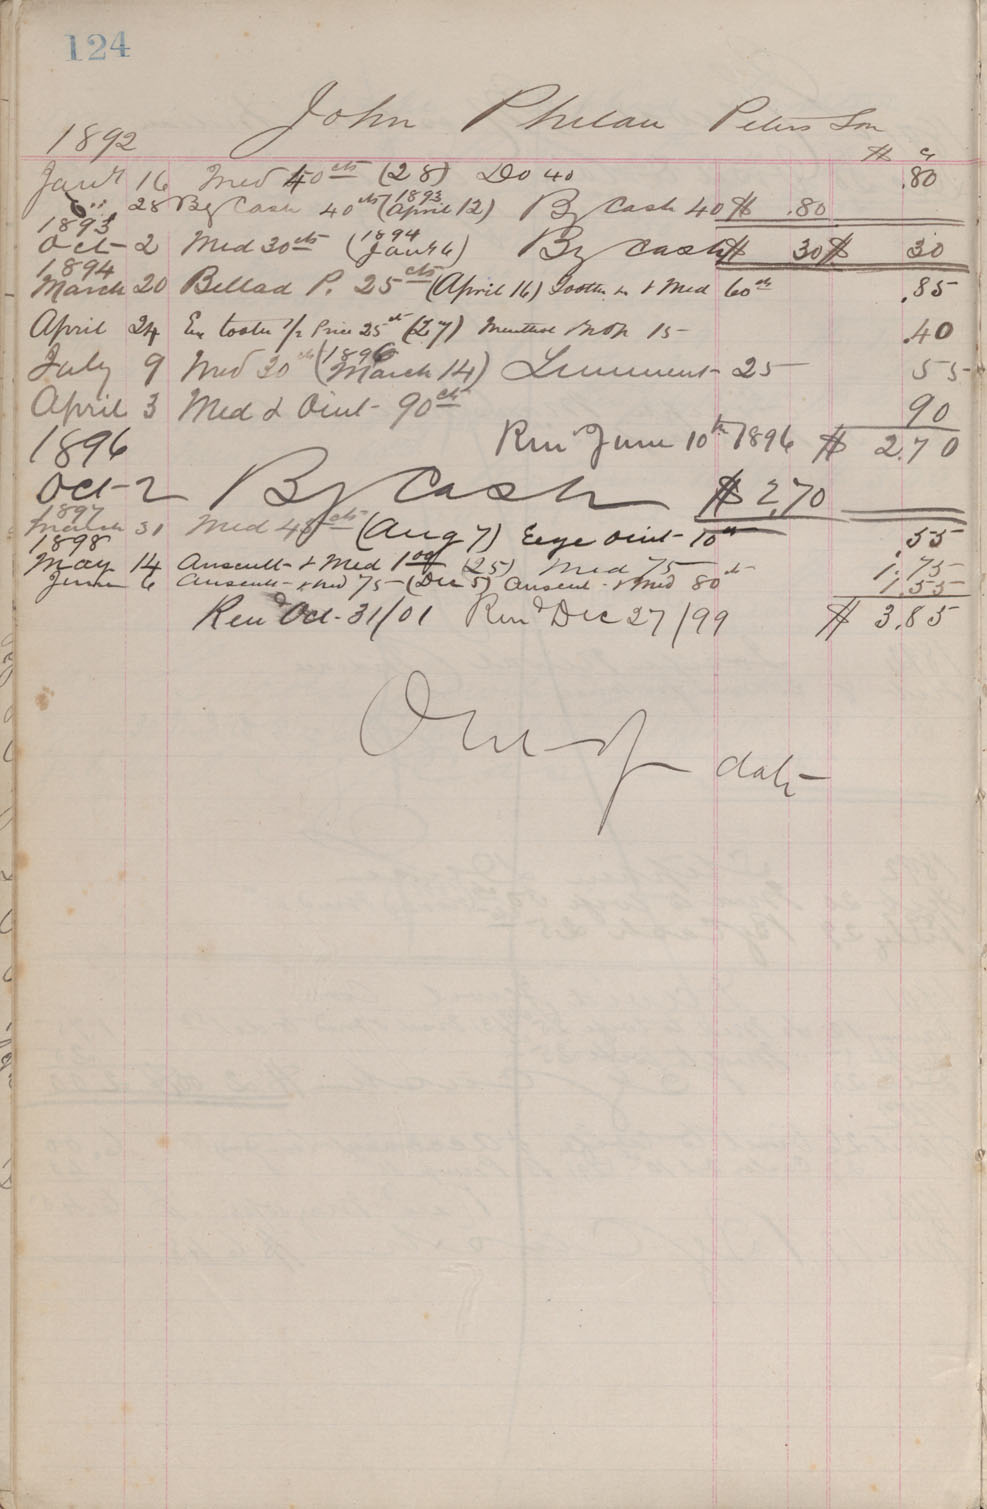 124
John Phelan Peters Son
1892 $ c
Janry 16 Med 40cts (28) Do 40 .80
" 28 By Cash 40cts (1893 April 12) By Cash 40 $ .80
1893
Oct 2 Med 30cts (1894 Janry 6) By Cash $ 30 $ 30
1894
March 20 Bellad P. 25cts (April 16) Tooth & Med 60cts .85
April 24 Ex tooth 1/2 Price 25ct (27) Menthol 15 .40
July 9 Med 30cts (1896 March 14) Liniment 25 55
April 3 Med & Oint 90cts 90
1896 Ren June 10th 1896 $ 2.70
Oct 2 By Cash $ 2.70
1897
March 31 Med 45cts (Aug 7) Eye Oint 10cts .55
1898
May 14 Auscult & Med 1.00 (25) Med 75cts 1.75
June 6 Auscult & Med 75 (Dec 5) Auscult & Med 80 1.55
Rend Oct. 31/01 Rend Dec 27/99 $ 3.85
Out of date